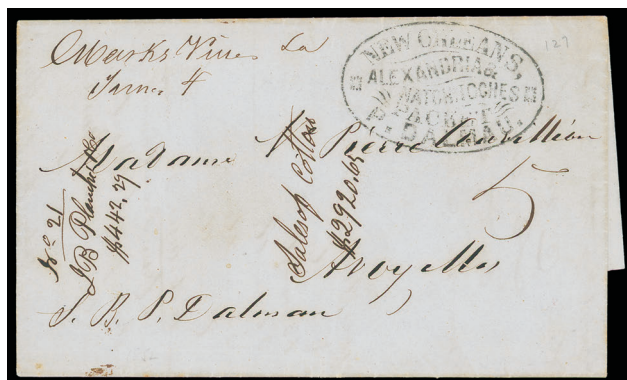 Marks Ville La
June 4
NEW ORLEANS,
ALEXANDRIA &
NATCHITOCHES
PACKET
P. DALMAU.
127
Madame Pierre Couvillion
5
Avoyelles
S. B. P. Dalman
No 21
J B Planche &c
$442.29
Sales of Cotton
$2920.65